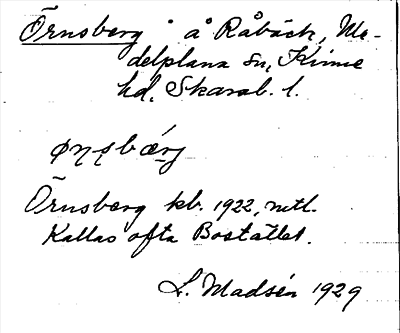 Örnsberg å Råbäck, Me-
delplana sn, Kinne
hd, Skarab. l.
ǫṇṣbærg
Örnsberg kb. 1922, mtl.
Kallas ofta Bostället.
L. Madsén 1929